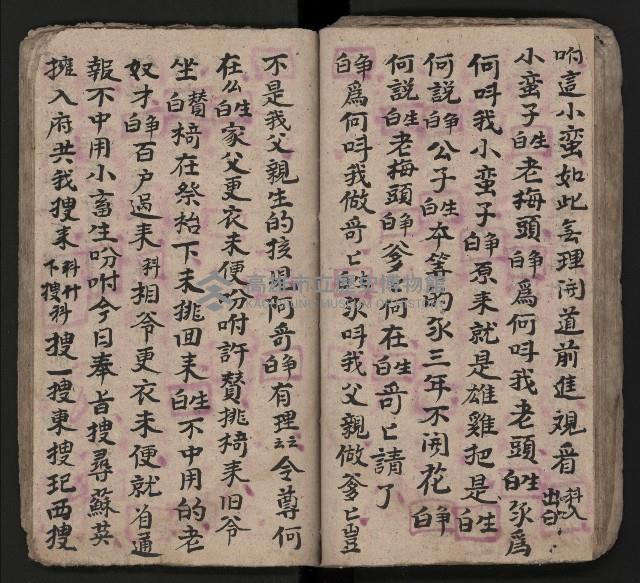 咐這小蛮如此無理開道前進观看科入出白
小蛮子生白老梅頭净白爲何叫我老頭生白你爲
何叫我小蛮子净白原来就是雄雞把是生白
何説净白公子生白夲等的你三年不開花净白
何説生白老梅頭净白爹何在生白哥匕請了
净白爲何叫我做哥匕你叫我父親做爹匕豈
不是我父親生的孩児阿哥净白有理云云令尊何
在公白生白家父更衣未便吩咐許賛挑椅来旧爷
坐賛白椅在祭枱下未挑回来生白不中用的老
奴才净白百户过来科相爷更衣未便就有通
報不中用小畜生吩咐今日奉旨搜尋蘇英
擁入府共我搜来科什下搜科搜一搜東搜玘西搜
高雄市立歷史博物館
KAOHSIUNG MUSEUM OF HISTORY